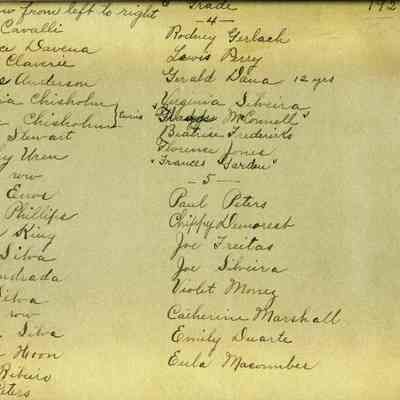 row from left to right" Trade 192
Cavalli
Davena
Claverie
Anderson
Chisholm
Chisholm } Twins
Stewart
Uren
row
Enos
Phillips
King
Silva
Andrada
Silva
row
Silva
Hoon
Ribeiro
Peters
- 4 -
Rodney Gerlach
Lewis Perry
Gerald Dana 12 yrs
Virginia Silveira
"Gladys McConnell"
Beatrice Fredericks
Florence Jones
"Frances Jardin"
- 5 -
Paul Peters
Chippy Demorest
Joe Freitas
Joe Silveira
Violet Money
Catherine Marshall
Emily Duarte
Eula Macomber